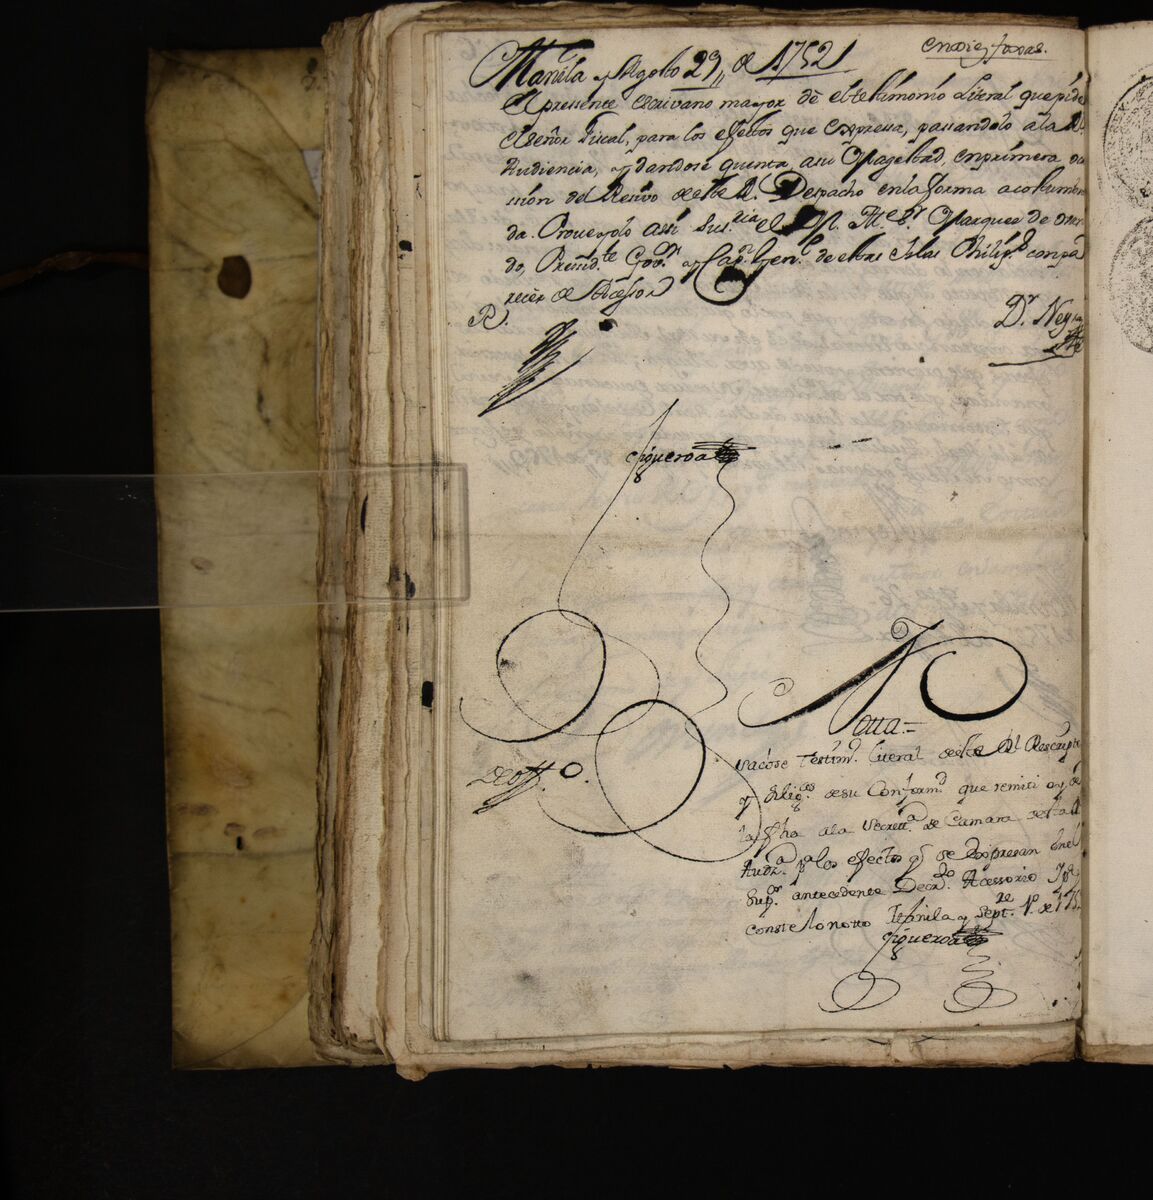 en diez foxas.
Manila y Agosto 29,, de 1752
El pressente escrivano mayor dè el testimonio Literal que pide
el señor fiscal, para los efectos que expressa, passandolo a la Rl.
Audiencia, y dandose quenta a su Magestad, en primera oca
ssion del Resivo de este Rl. Despacho en la forma acostumbra
da. Proveyolo assi su s.ria el M. Ytt.e s.r Marquez de Ovan
do, Presid.te Gov.or y Cap.n Gen.l de estas Islas Philip.s con pa
recer de Acessor
R. D.r Neyra
Figueroa
Notta =
Sacose Testim.o Literal deste Rl Rescripto
y Dilig.as de su Conform.d que remiti oy dia
la fha a la Secrett.a de Camara desta Rl
Aud.a p.a los efectos q.e se Expresan En el
Sup.or antecedente Decr.to Acessorio Y pa q.e
Conste lo notto Manila y Sept.re 1.o de 175
Figueroa
de off.o